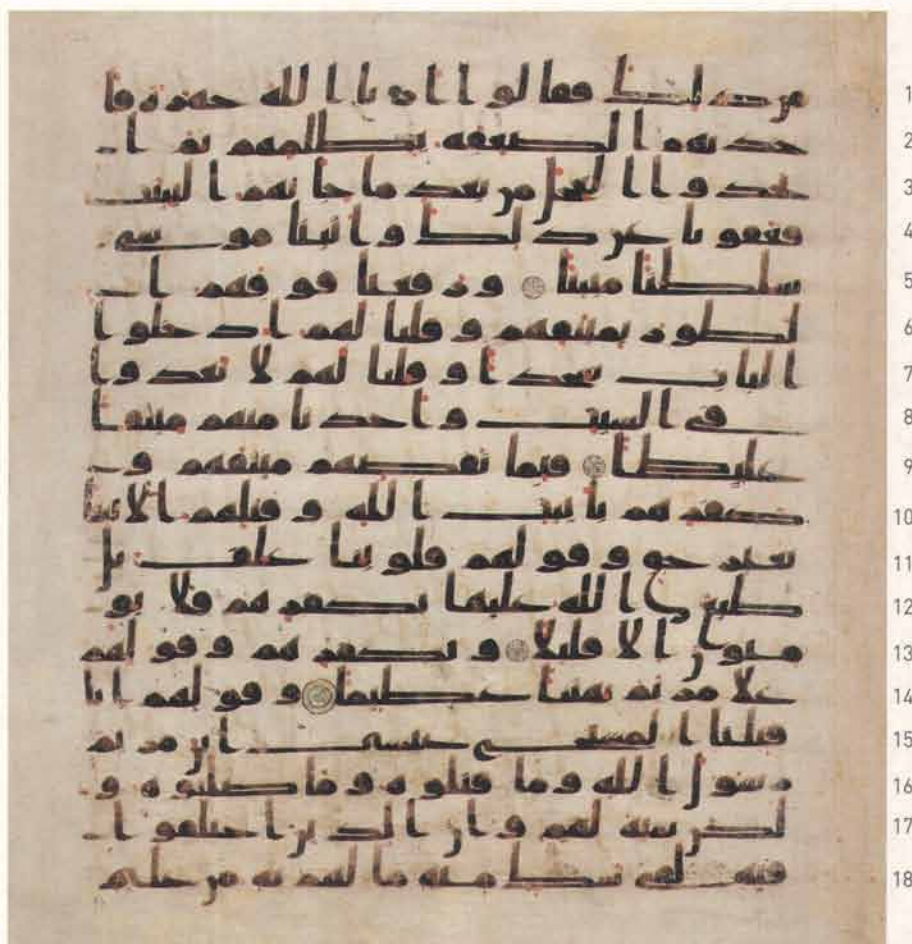 من ذلك فقالوا ارنا الله جهرة فا 1
خذتهم الصعقة بظلمهم ثم ا 2
تخذوا العجل من بعد ما جاتهم البينت 3
فعفونا عن ذلك واتينا موسى 4
سلطنا مبينا ورفعنا فوقهم ا 5
لطور بميثقهم وقلنا لهم ادخلوا 6
الباب سجدا وقلنا لهم لا تعدوا 7
في السبت واخذنا منهم ميثقا 8
غليظا فبما نقضهم ميثقهم و 9
كفرهم بايت الله وقتلهم الانبيا 10
بغير حق وقولهم قلوبنا غلف بل 11
طبع الله عليها بكفرهم فلا يو 12
منون الا قليلا وبكفرهم وقولهم 13
على مريم بهتنا عظيما وقولهم انا 14
قتلنا المسيح عيسى ابن مريم 15
رسول الله وما قتلوه وما صلبوه و 16
لكن شبه لهم وان الذين اختلفوا 17
فيه لفي شك منه ما لهم به من علم 18